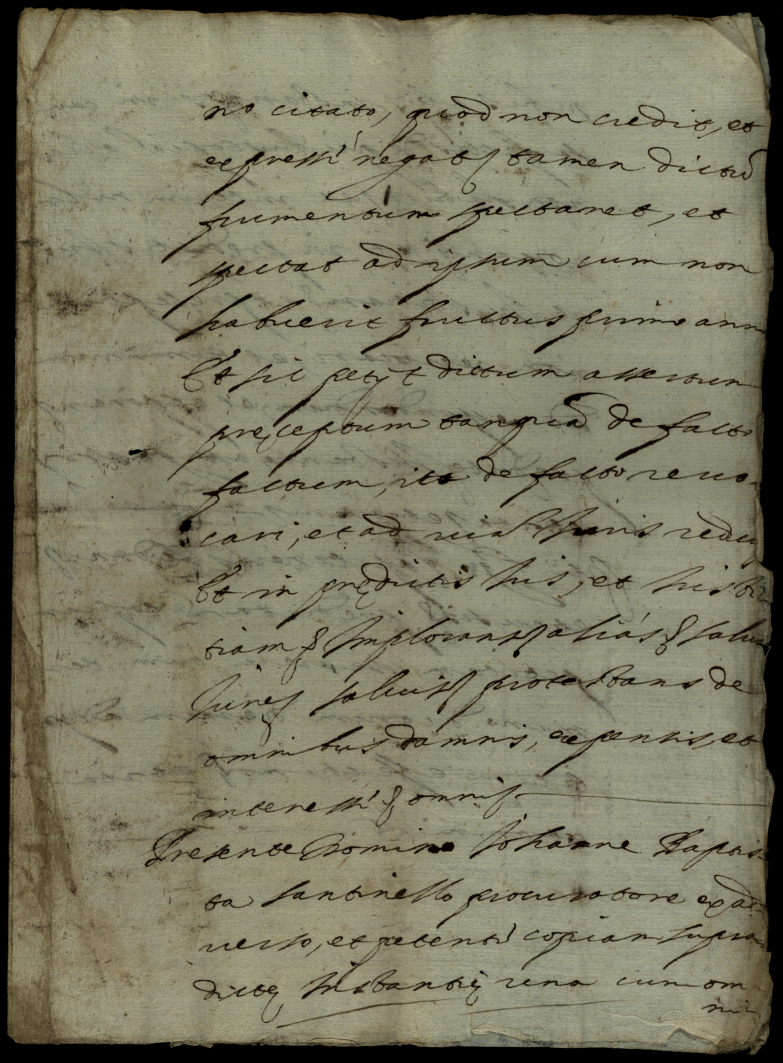 no citato, quod non credit, et
expressè negat tamen dictũ
frumentum spectaret, et
spectat ad ipsum cum non
habuerit fructus primo anni
Et sic petijt dictum assertum
pręceptum tanquã de facto
factum, ita de facto revo
cari, et ad viã Iuris reduci
Et in prędictis Ius, et Iusti
tiam & Implorans aliàs & salvis
Iuris salvis protestans de
omnibus damnis, expensis, et
interesse & omnis
Presente Domino Iohanne Baptis
ta santinello procuratore ex ad
verso, et petente copiam supra
dictę Instantię una cum om
ni